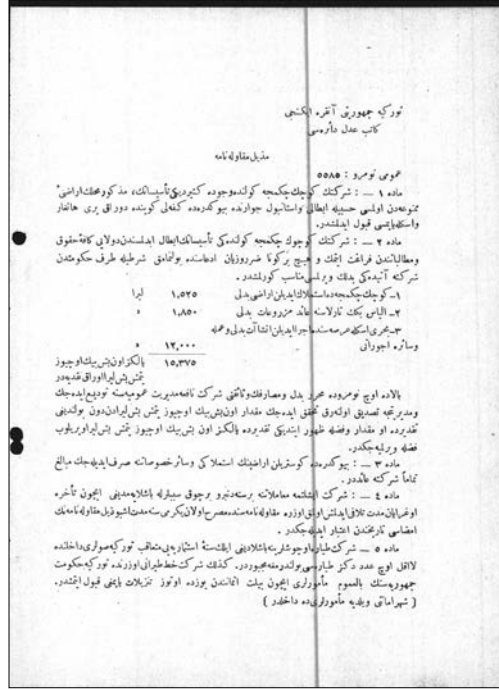 توركيه جمهوريتى آنقره ايكنجى
كاتب عدل دائره‌سى
مذيل مقاوله‌نامه
عمومى نومرو : ٥٥٨٥
ماده ١ — : شركتك كوچك‌چكمجه كولنده‌وجوده كتيرديكى‌تأسيساتك، مذكورمحلك‌اراضئ
ممنوعه‌دن اولمسى حسبيله ابطالى واستانبول جوارنده بيوكدره‌ده كفه‌لى كوينده دورلق يرى هانغار
واسكله‌ياپمسى قبول ايدلمشدر.
ماده ٢ — : شركتك كوچوك چكمجه كولنده‌كى تأسيساتك‌ابطال ايدلمسندن‌دولايى كافۀ‌حقوق
ومطالباتندن فراغت ايتمك و هيچ بركونا ضرروزيان ادعاسنده بولنمامق شرطيله طرف حكومتدن
شركته آتيده‌كى بدلك ويرلمسى‌مناسب كورلمشدر.
١ــ كوچك‌چكمجه‌ده‌استملاك‌ايديلن‌اراضى‌بدلى ١,٥٢٥ ليرا
٢ــ الياس بكك تارلاسنه عائد مزروعات بدلى ١,٨٥٠ »
٣ــ بحرى‌اسكله‌عرصه‌سنده‌اجراايديلن‌انشاآت‌بدلى‌وعمله
وسائره اجوراتى ١٢,٠٠٠ »
١٥,٣٧٥ يالكزاون‌بش‌بيك‌اوچيوز
يتمش‌بش‌ليرااوراق‌نقديه‌در
بالاده اوچ نومروده محرر بدل ومصارفك‌وثائقى شركت نافعه‌مديريت عموميه‌سنه توديع‌ايده‌جك
ومديريتجه تصديقى اولنه‌رق تحقق ايده‌جك مقدار اون‌بش‌بيك اوچيوز يتمش بش‌ليرادن‌دون بولنديغى
تقديرده او مقدار وفضله ظهور ايتديكى تقديرده يالكز اون بش‌بيك اوچيوز يتمش بش‌ليراويريلوب
فضله ويرلميه‌جكدر.
ماده ٣ — : بيوكدره‌ده كوستريلن اراضينك استملاكى وسائر خصوصاتنه صرف‌ايديله‌جك مبالغ
تماماً شركته عائددر.
ماده ٤ — : شركت ايشلتمه معاملاتنه برسنه‌دنبرو برچوق سببلرله باشلايه‌مديغى ايچون تأخره
اوغرايان‌مدت تلافى‌ايدلمش‌اولمق‌اوزره مقاوله‌نامه‌سنده‌مصرح‌اولان‌يكرمى‌سنه‌مدت‌اشبوذيل‌مقاوله‌نامه‌نك
امضاسى تاريخندن اعتبار ايديله‌جكدر.
ماده ٥ — شركت‌طياره‌اوچوشلرينه‌باشلاديغى ايلك‌سنۀ استثماريه‌يى‌متعاقب توركيه‌صولرى‌داخلنده
لااقل اوچ عدد دكز طياره‌سى‌بولندرمغه‌مجبوردر. كذلك شركت‌خط‌طيرانى‌اوزرنده توركيه‌حكومت
جمهوريه‌سنك بالعموم مأمورلرى ايچون بيلت اثماندن يوزده اوتوز تنزيلات ياپمغى قبول ايتمشدر.
( شهراماناتى وبلديه مأمورلرى‌ده داخلدر )